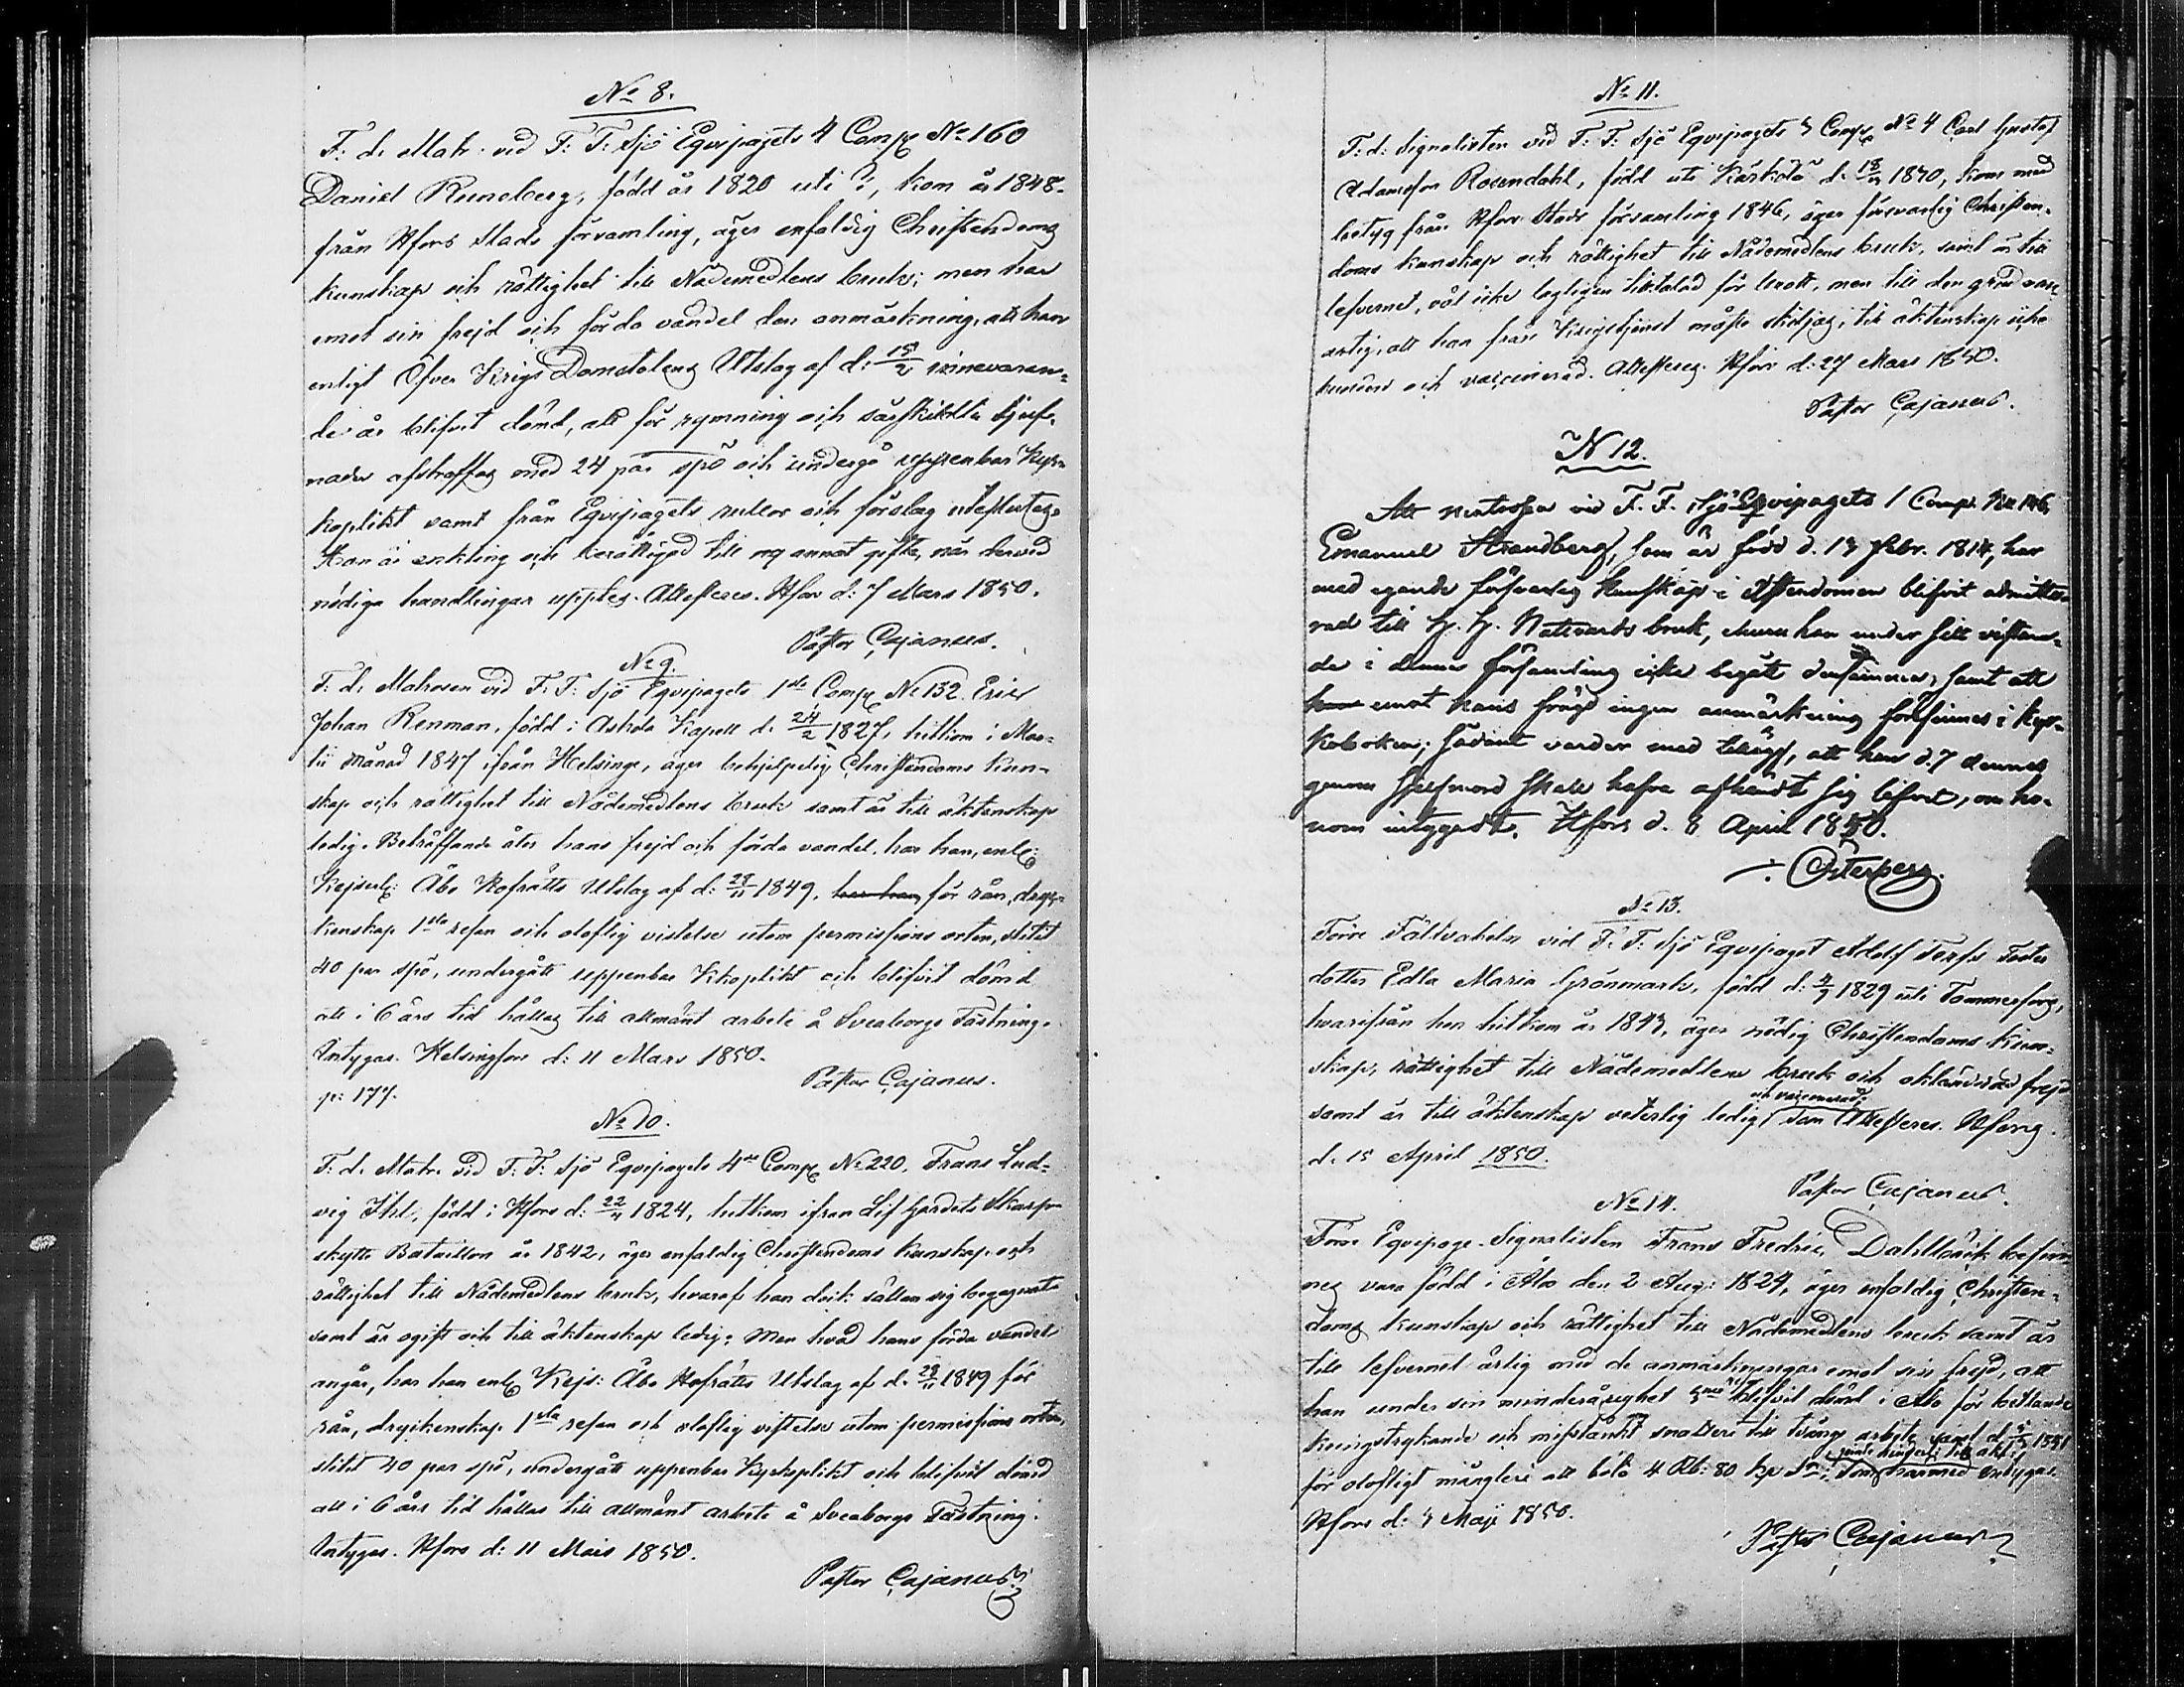 No 8.
F: d. Matr. vid F: F: Sjö Eqvipagets 4 Comp No 160
Daniel Runeberg, född år 1820 uti i, kom år 1848
från Hfors Stads församling, äger enfaldig Christendoms
kunskap och rättighet till Nådemedlens bruk; men har
emot sin frejd och förda vandel den anmärkning, att han
enligt Öfver Krigs Domstolens Utslag af d: 15/2 innevaran-
de år blifvit dömd, att för rymning och särskildta tjuf-
nader afstraffas med 24 par spö och undergå uppenbar Kyr-
koplikt samt från Eqvipagets rullor och förslag uteslutas.
Han är enkling och berättigad till nytt annat gifte, när dervid
nödiga handlingar upptes. Attesteres. Hfors d: 7 Mars 1850.
Pastor Cajanus.
No 9.
F: d. Matrosen vid F: F: Sjö Eqvipagets 1sta Comp No 132. Eric
Johan Renman, född i Askola Kapell d. 24/2 1827, hitkom i Mar-
tii månad 1847 ifrån Helsinge, äger behjelpelig Christendoms kun-
skap och rättighet till Nådemedlens bruk samt är till äktenskap
ledig. Beträffande åter hans frejd och förda vandel, har han, enl:
Kejserl: Åbo Hofrätts Utslag af d: 28/11 1849, har han för rån, dryc-
kenskap 1sta resan och oloflig vistelse utom permissions orten, slitit
40 par spö, undergått uppenbar Kkoplikt och blifvit dömd
att i 6 års tid hållas till allmänt arbete å Sveaborgs Fästning.
Intygas. Helsingfors d: 11 Mars 1850.
Pastor Cajanus.
p: 177.
No 10.
F: d. Matr. vid F: F: Sjö Eqvipagets 4de Comp No 220, Frans Lud-
vig Ihl, född i Hfors d: 22/11 1824, hitkom ifrån Lif Gardets Skarp-
skytte Bataillon år 1842, äger enfaldig Christendoms kunskap och
rättighet till Nådemedlens bruk, hvaraf han dock sällan sig begagnat
samt är ogift och till äktenskap ledig; Men hvad hans förda vandel
angår, har han enl Kejs: Åbo Hofrätts Utslag af d. 28/11 1849 för
rån, dryckenskap 1sta resan och oloflig vistelse utom permissions orten,
slitit 40 par spö, undergått uppenbar Kyrkoplikt och blifvit dömd
att i 6 års tid hållas till allmänt arbete å Sveaborgs Fästning.
Intygas. Hfors d: 11 Mars 1850.
Pastor Cajanus
No 11.
F: d: Signalisten vid F: F: Sjö Eqvipagets 3 Comp No 4 Carl Gustaf
Adamsson Rosendahl, född uti Kärkölä d. 1830, kom med
betyg från Hfors Stads församling 1846, äger försvarlig Christen-
doms kunskap och rättighet till Nådemedlens bruk, samt är till
lefvernet, väl icke lagligen tilltalad för brott, men till den grad van-
artig, att han från Krigstjenst måste skiljas; till äktenskap icke
bunden och vaccinerad. Attesteres. Hfors d: 27 Mars 1850.
Pastor Cajanus.
N 12.
Att matrosen vid F. F. Sjö Eqvipagets 1 Comp. No 146
Emanuel Strandberg, som är född d. 13 Febr. 1814, har
med egande försvarlig kunskap i Xstendomen blifvit admitte-
rad till H. H. Nattvards bruk, ehuru han under sitt vistan-
de i denna församling icke begått densamma, samt att
emot hans frägd ingen anmärkning förefinnes i kyr-
koboken; sådant varder med tillägg, att han d. 7 dennes
genom sjelfmord skall hafva afhändt sig lifvet, om ho-
nom intygadt. Hfors d. 8 April 1850.
Österberg.
No 13.
Förre Fältväbeln vid F: F: Sjö Eqvipaget Adolf Forss Foster
dotter Edla Maria Grönmark, född d: 1829 uti Tammerfors,
hvarifrån hon hitkom år 1843, äger nödig Christendoms kun-
skap, rättighet till Nådemedlens bruk och oklandrad frejd
och vaccinerad;
samt är till äktenskap veterlig ledig Som Attesteres. Hfors
d. 15 April 1850.
Pastor Cajanus
No 14.
Förre Eqvipage-Signalisten Frans Fredric Dahlbäck befin-
nes vara född i Åbo den 2 Aug: 1824, äger enfaldig Christen-
doms kunskap och rättighet till Nådemedlens bruk samt är
till lefvernet ärlig med de anmärkningar emot sin frejd, att
han under sin minderårighet blifvit dömd i Åbo för bettlande
kringstrykande och misstänkt snatteri till tvångs arbete samt d.
för olofligt mångleri att böta 4 Rb: 80 kop Sr; Som härmed intygas
Hfors d: 3 Maji 1850.
Pastor Cajanus